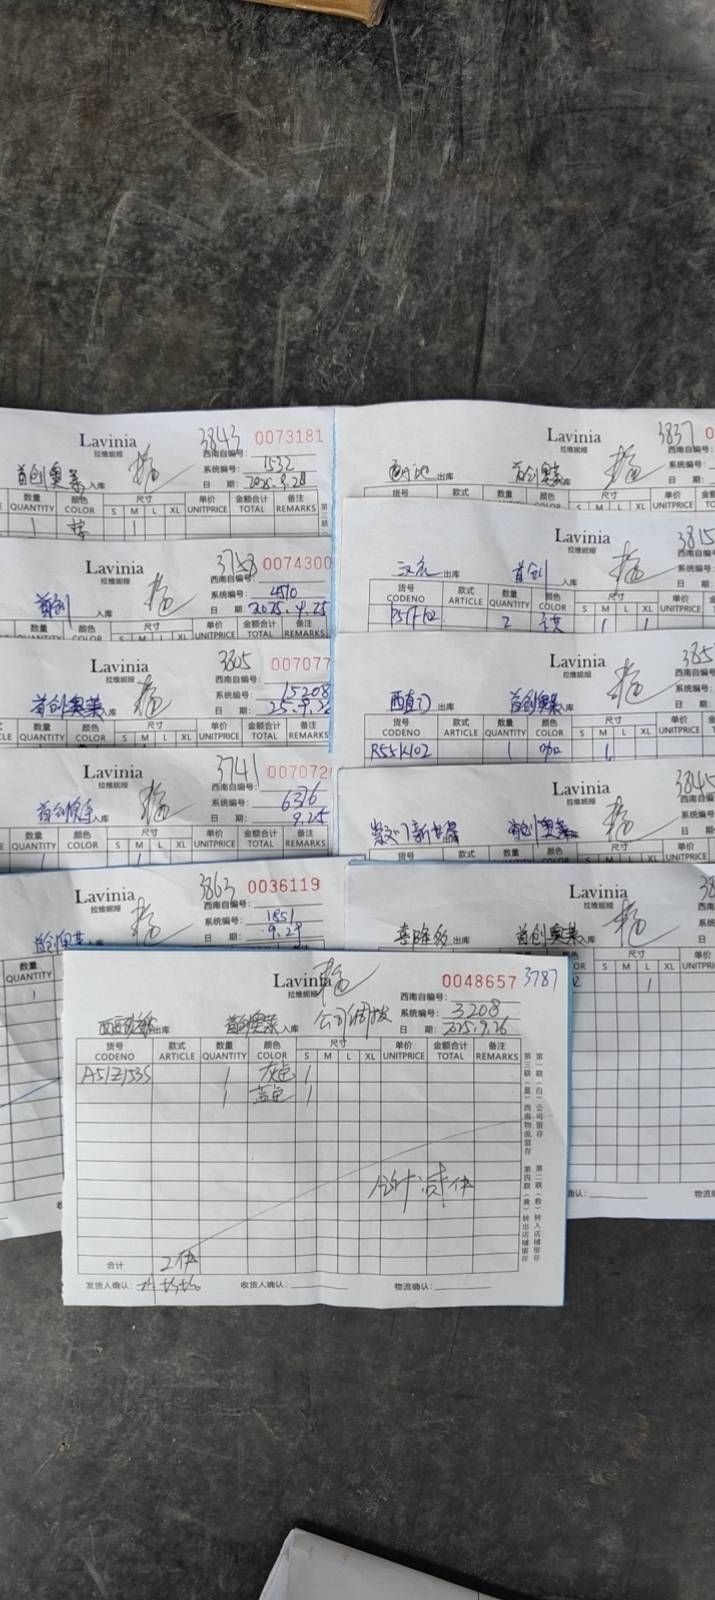 Lavinia 3843 0073181
拉维妮娅 西南自编号:
首创奥莱入库 系统编号: 1532
日 期: 2025.9.28
数量 颜色 尺寸 单价 金额合计 备注
QUANTITY COLOR S M L XL UNITPRICE TOTAL REMARKS
1 1
Lavinia 0074300
拉维妮娅 西南自编号:
首创 入库 系统编号: 4510
日 期: 2025.9.25
数量 颜色 尺寸 单价 金额合计 备注
QUANTITY COLOR S M L XL UNITPRICE TOTAL REMARKS
Lavinia 3805 007077
拉维妮娅 西南自编号:
首创奥莱入库 系统编号: 15208
日 期: 25.9.26
数量 颜色 尺寸 单价 金额合计 备注
QUANTITY COLOR S M L XL UNITPRICE TOTAL REMARKS
Lavinia 3741 007072
拉维妮娅 西南自编号:
入库 系统编号: 6376
日 期: 9.25
数量 颜色 尺寸 单价 金额合计 备注
QUANTITY COLOR S M L XL UNITPRICE TOTAL REMARKS
Lavinia 3863 0036119
拉维妮娅 西南自编号:
首创奥莱入库 系统编号: 1851
日 期: 9.29
数量
QUANTITY
1
Lavinia 3837 0
拉维妮娅 西南自编号:
出库 首创奥莱 系统编号:
日 期:
货号 款式 数量 颜色 尺寸 单价
Lavinia 3815
拉维妮娅 西南自编
出库 首创 入库 系统编号
日 期
货号 款式 数量 颜色 尺寸 单价
CODENO ARTICLE QUANTITY COLOR S M L XL UNITPRICE
2 1 1
Lavinia 385
拉维妮娅 西南自编
西直门 出库 首创奥莱入库 系统编号
日
货号 款式 数量 颜色 尺寸 单价
CODENO ARTICLE QUANTITY COLOR S M L XL UNITPRICE
R55K102 1 咖 1
Lavinia 3845
拉维妮娅 西南自编
崇文门新世界 首创奥莱 系统编号
日
货号 款式 数量 颜色 尺寸 单价
Lavinia
拉维妮娅 西南自
出库 首创奥莱入库 系统编
日
尺寸 单价
S M L XL UNITPRI
1
Lavinia 0048657 3787
拉维妮娅 西南自编号:
出库 首创奥莱入库 公司调拨 系统编号: 3208
日 期: 2025.9.26
货号 款式 数量 颜色 尺寸 单价 金额合计 备注
CODENO ARTICLE QUANTITY COLOR S M L XL UNITPRICE TOTAL REMARKS
A51Z153S 1 灰色 1
1 蓝色 1
合计贰件
合计 2件
发货人确认: 收货人确认: 物流确认:
第一联(白)公司留存
第二联(粉)转入店铺留存
第三联(蓝)西南物流留存
第四联(黄)转出店铺留存
确认: 物流